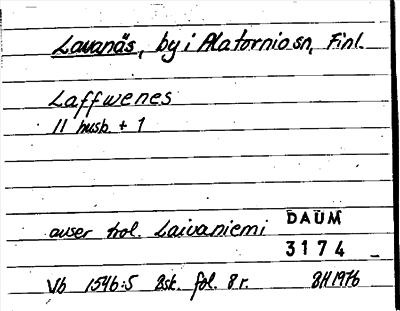 Lavanäs, by i Alatornio sn, Finl.
Laffwenes
11 husb + 1
avser trol. Laivaniemi
DAUM
3174
Vb 1546:5 Bsk. fol. 8 r. BH1976